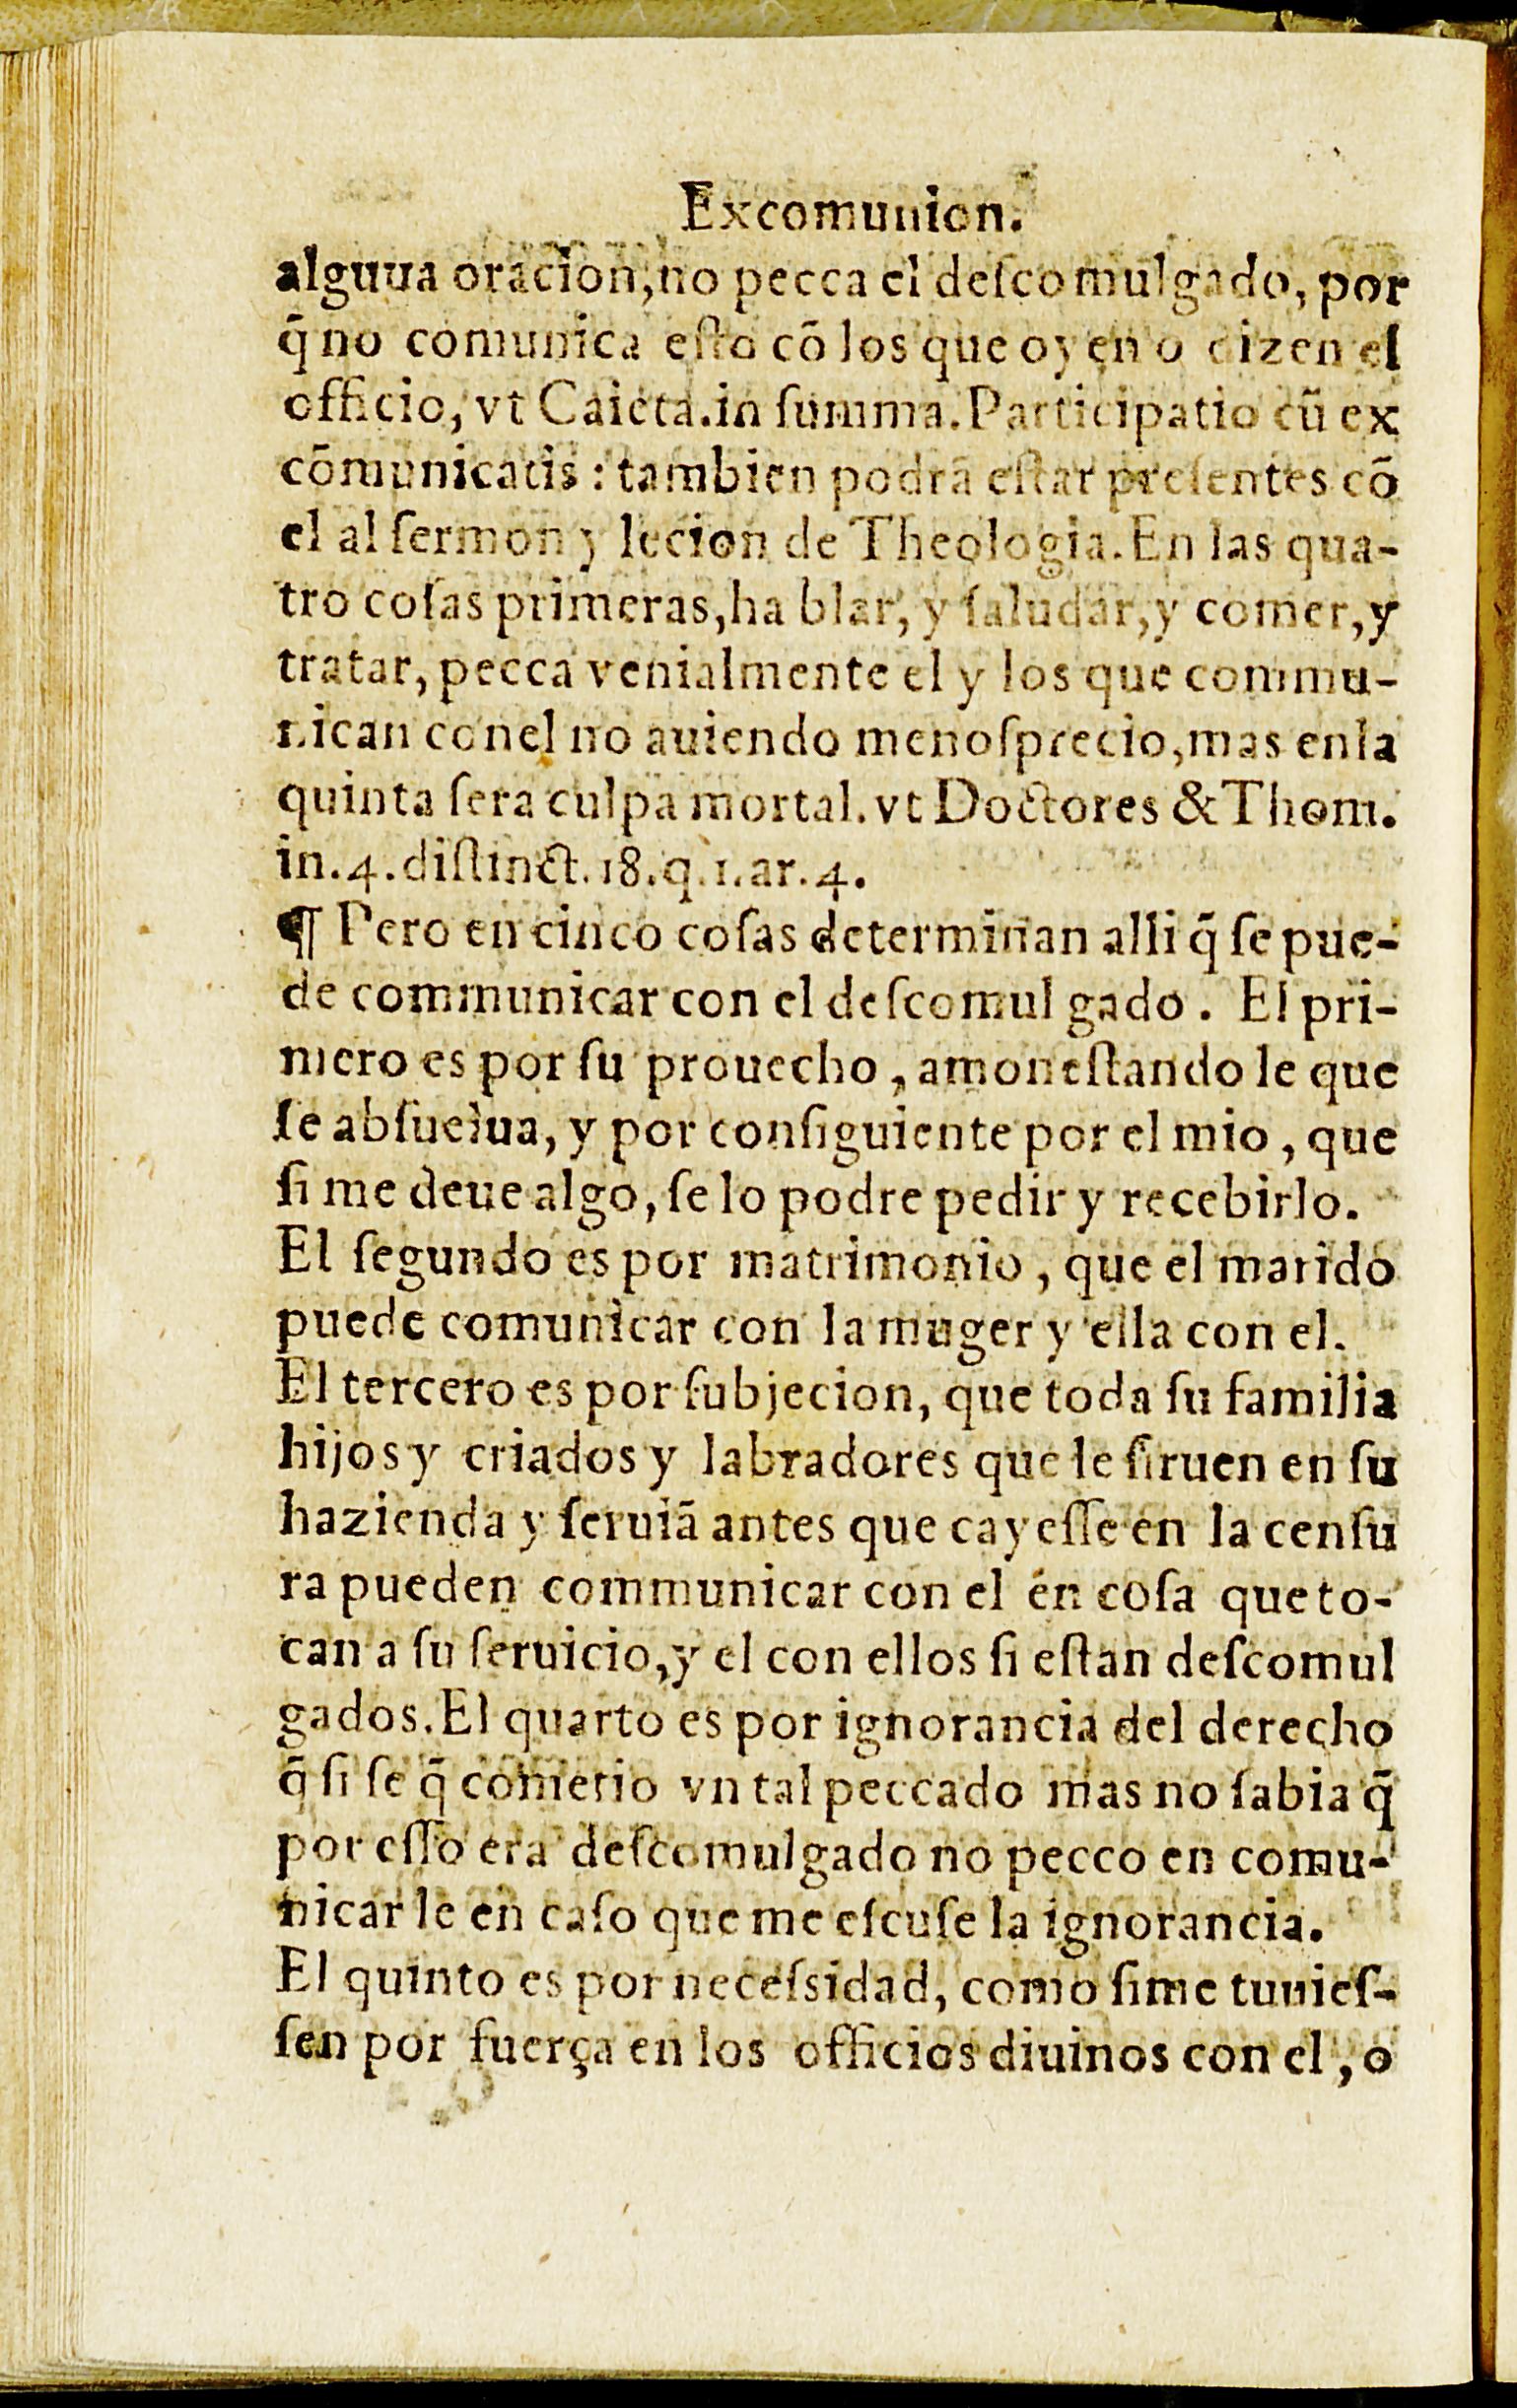 Excomunion.
alguua oracion, no pecca el deſcomulgado, por
q̃ no comunica eſto cõ los que oyen o dizen el
officio, vt Caieta. in ſumma. Participatio cũ ex
cõmunicatis : tambien podrã eſtar preſentes cõ
el al ſermon y lecion de Theologia. En las qua-
tro coſas primeras, ha blar, y ſaludar, y comer, y
tratar, pecca venialmente el y los que commu-
nican conel no auiendo menoſprecio, mas enla
quinta ſera culpa mortal. vt Doctores & Thom.
in. 4. diſtinct. 18. q. 1. ar. 4.
¶ Pero en cinco coſas determinan alli q̃ ſe pue-
de communicar con el deſcomul gado . El pri-
mero es por ſu prouecho , amoneſtando le que
ſe abſuelua, y por conſiguiente por el mio , que
ſi me deue algo, ſe lo podre pedir y recebirlo.
El ſegundo es por matrimonio , que el marido
puede comunicar con la muger y ella con el.
El tercero es por ſubjecion, que toda ſu familia
hijos y criados y labradores que le ſiruen en ſu
hazienda y ſeruiã antes que cayeſſe en la cenſu
ra pueden communicar con el en coſa que to-
can a ſu ſeruicio, y el con ellos ſi eſtan deſcomul
gados. El quarto es por ignorancia del derecho
q̃ ſi ſe q̃ cometio vn tal peccado mas no ſabia q̃
por eſſo era deſcomulgado no pecco en comu-
nicar le en caſo que me eſcuſe la ignorancia.
El quinto es por neceſsidad, como ſime tuuieſ-
ſen por fuerça en los officios diuinos con el , o